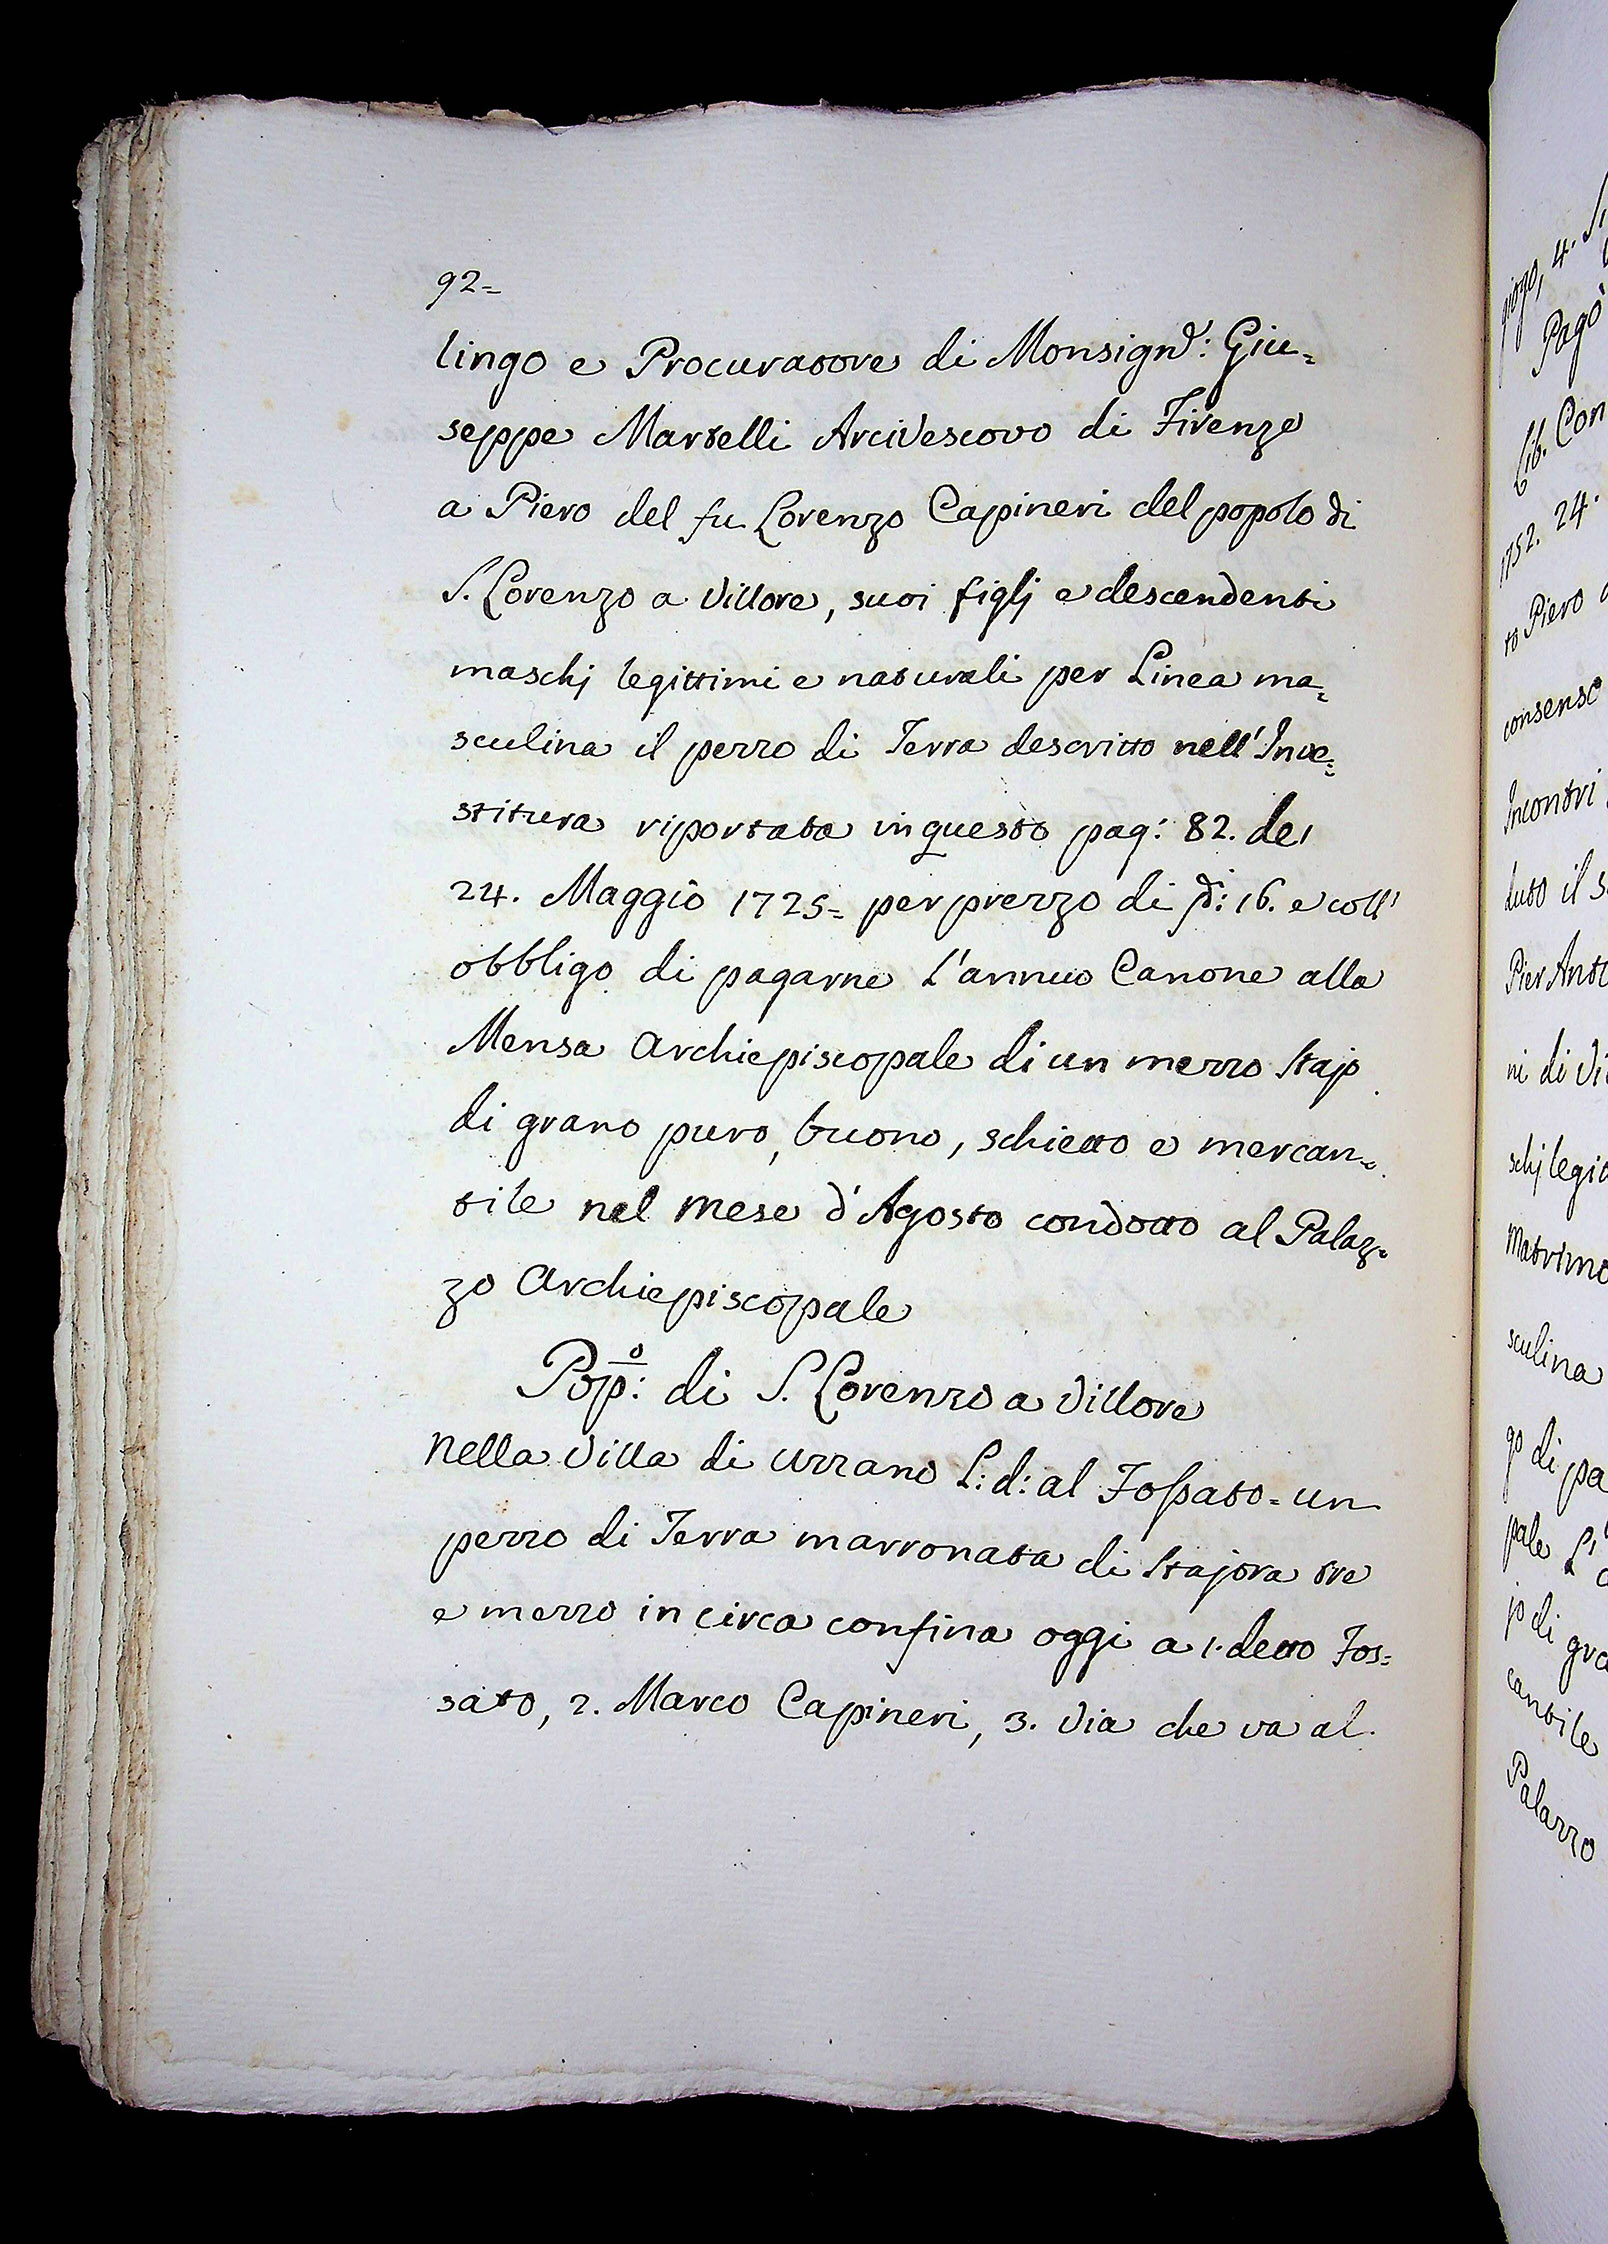 92=
lingo e Procuratore di Monsignr: Giu=
seppe Martelli Arcivescovo di Firenze
a Piero del fu Lorenzo Capineri del popolo di
S. Lorenzo a Villore, suoi figlj e descendenti
maschj legittimi e naturali per Linea ma=
sculina il pezzo di Terra descritto nell'Inve=
stitura riportata in questo pag: 82. de'
24. Maggio 1725= per prezzo di 16. e coll'
obbligo di pagarne l'annuo Canone alla
Mensa Archiepiscopale di un mezzo Stajo
di grano puro, buono, schietto e mercan=
tile nel mese d'Agosto condotto al Palaz=
zo Archiepiscopale
Pop:o di S. Lorenzo a Villore
Nella Villa di Uzzano L: d: al Fossato= un
pezzo di Terra marronata di Stajora tre
e mezzo in circa confina oggi a 1. detto Fos=
sato, 2. Marco Capineri, 3. Via che va al
giogo, 4.
Pagò
Lib. Con
1752. 24.
to Piero
consenso
Incontri
duto il
Pier Anto
ni di Vi
schj legit
matrimo
sculina
go di pa
pale L'
jo di gra
cantile
Palazzo